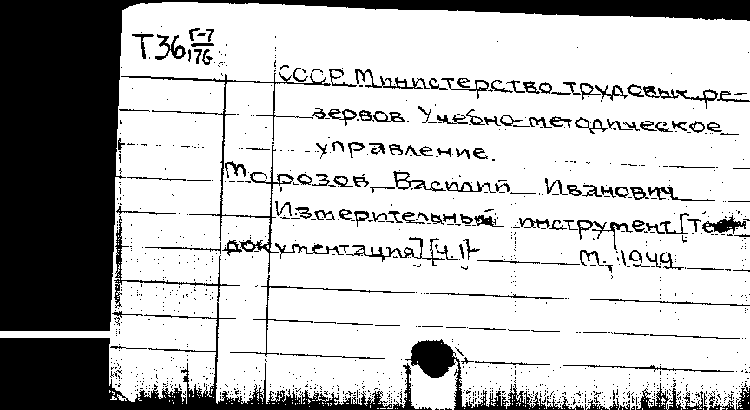 Т36 Г-7
176
СССР. Министерство трудовых ре-
зервов. Учебно-методическое
управление.
Морозов, Василий Иванович
Измерительный инструмент [Тех
документация] [Ч. 1]
М., 1949.